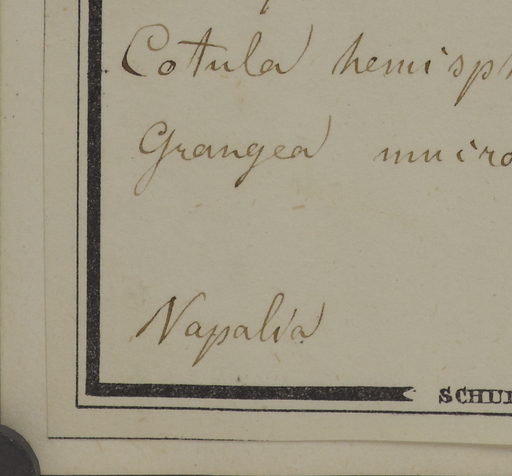 Cotula hemisph
Grangea mucro
Napalia
SCHUL